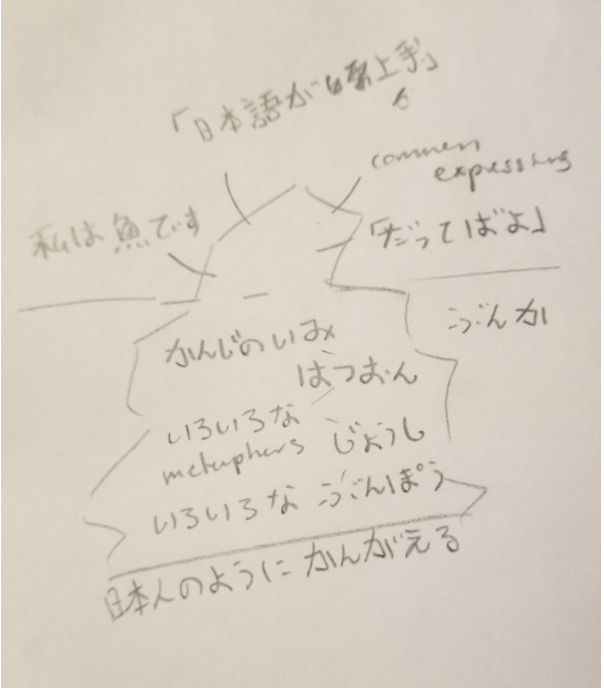 「日本語が上手」
common
expressions
私は魚です
「だってばよ」
ぶんか
かんじのいみ
はつおん
いろいろな
metaphors じょうし
いろいろな ぶんぽう
日本人のように かんがえる